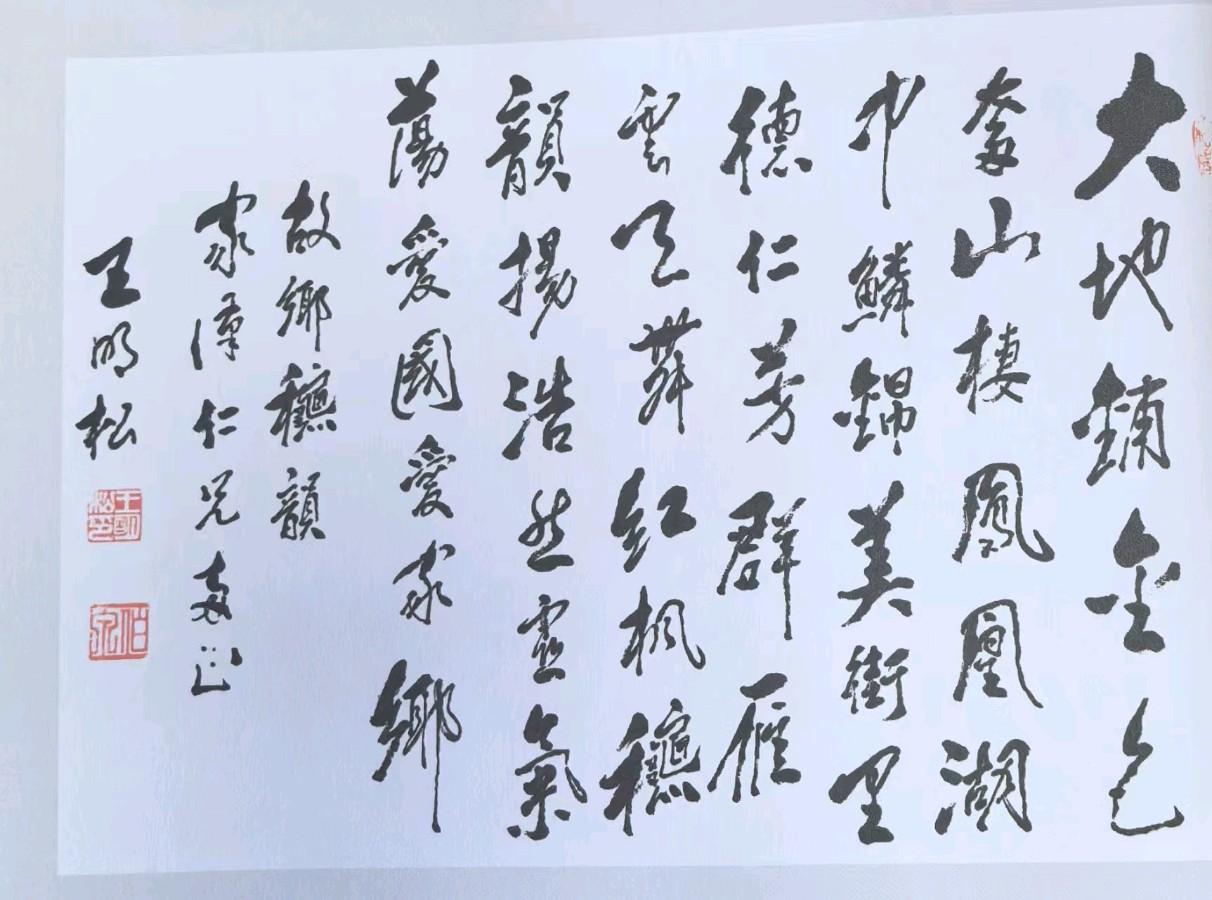 大地鋪金色
奓山棲鳳凰湖
中鱗錦美街里
德仁芳群雁
雲天舞紅楓穐
韻揚浩然靈氣
蕩愛國愛家鄉
故鄉穐韻
家仁兄正
王明松